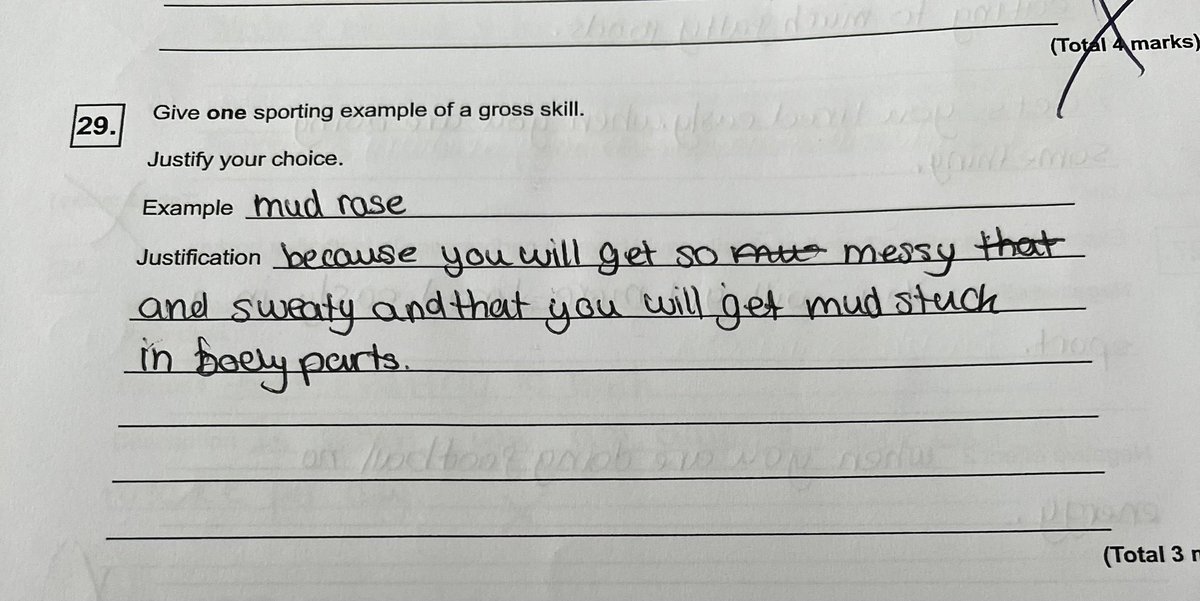 (Total 4 marks)
29.
Give one sporting example of a gross skill.
Justify your choice.
Example mud rase
Justification because you will get so messy that
and sweaty and that you will get mud stuck
in boely parts.
(Total 3 m